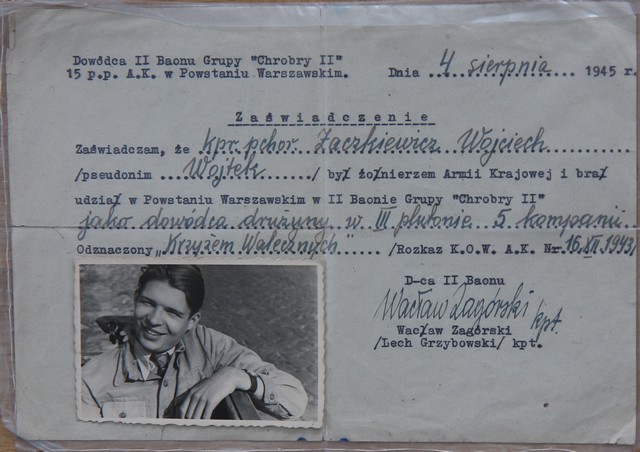 Dowódca II Baonu Grupy "Chrobry II"
15 p.p. A.K. w Powstaniu Warszawskim. Dnia ..4 sierpnia... 1945 r.
Zaświadczenie
Zaświadczam, że kpr. pchor. Żaczkiewicz Wojciech
/pseudonim ..Wojtek......../ był żołnierzem Armii Krajowej i brał
udział w Powstaniu Warszawskim w II Baonie Grupy "Chrobry II"
jako dowódca drużyny w III plutonie 5 kompanii
Odznaczony „Krzyżem Walecznych"...../Rozkaz K.O.W. A.K. Nr. 16.XII.1943/
D-ca II Baonu
Wacław Zagórski kpt.
Wacław Zagórski
/Lech Grzybowski/ kpt.